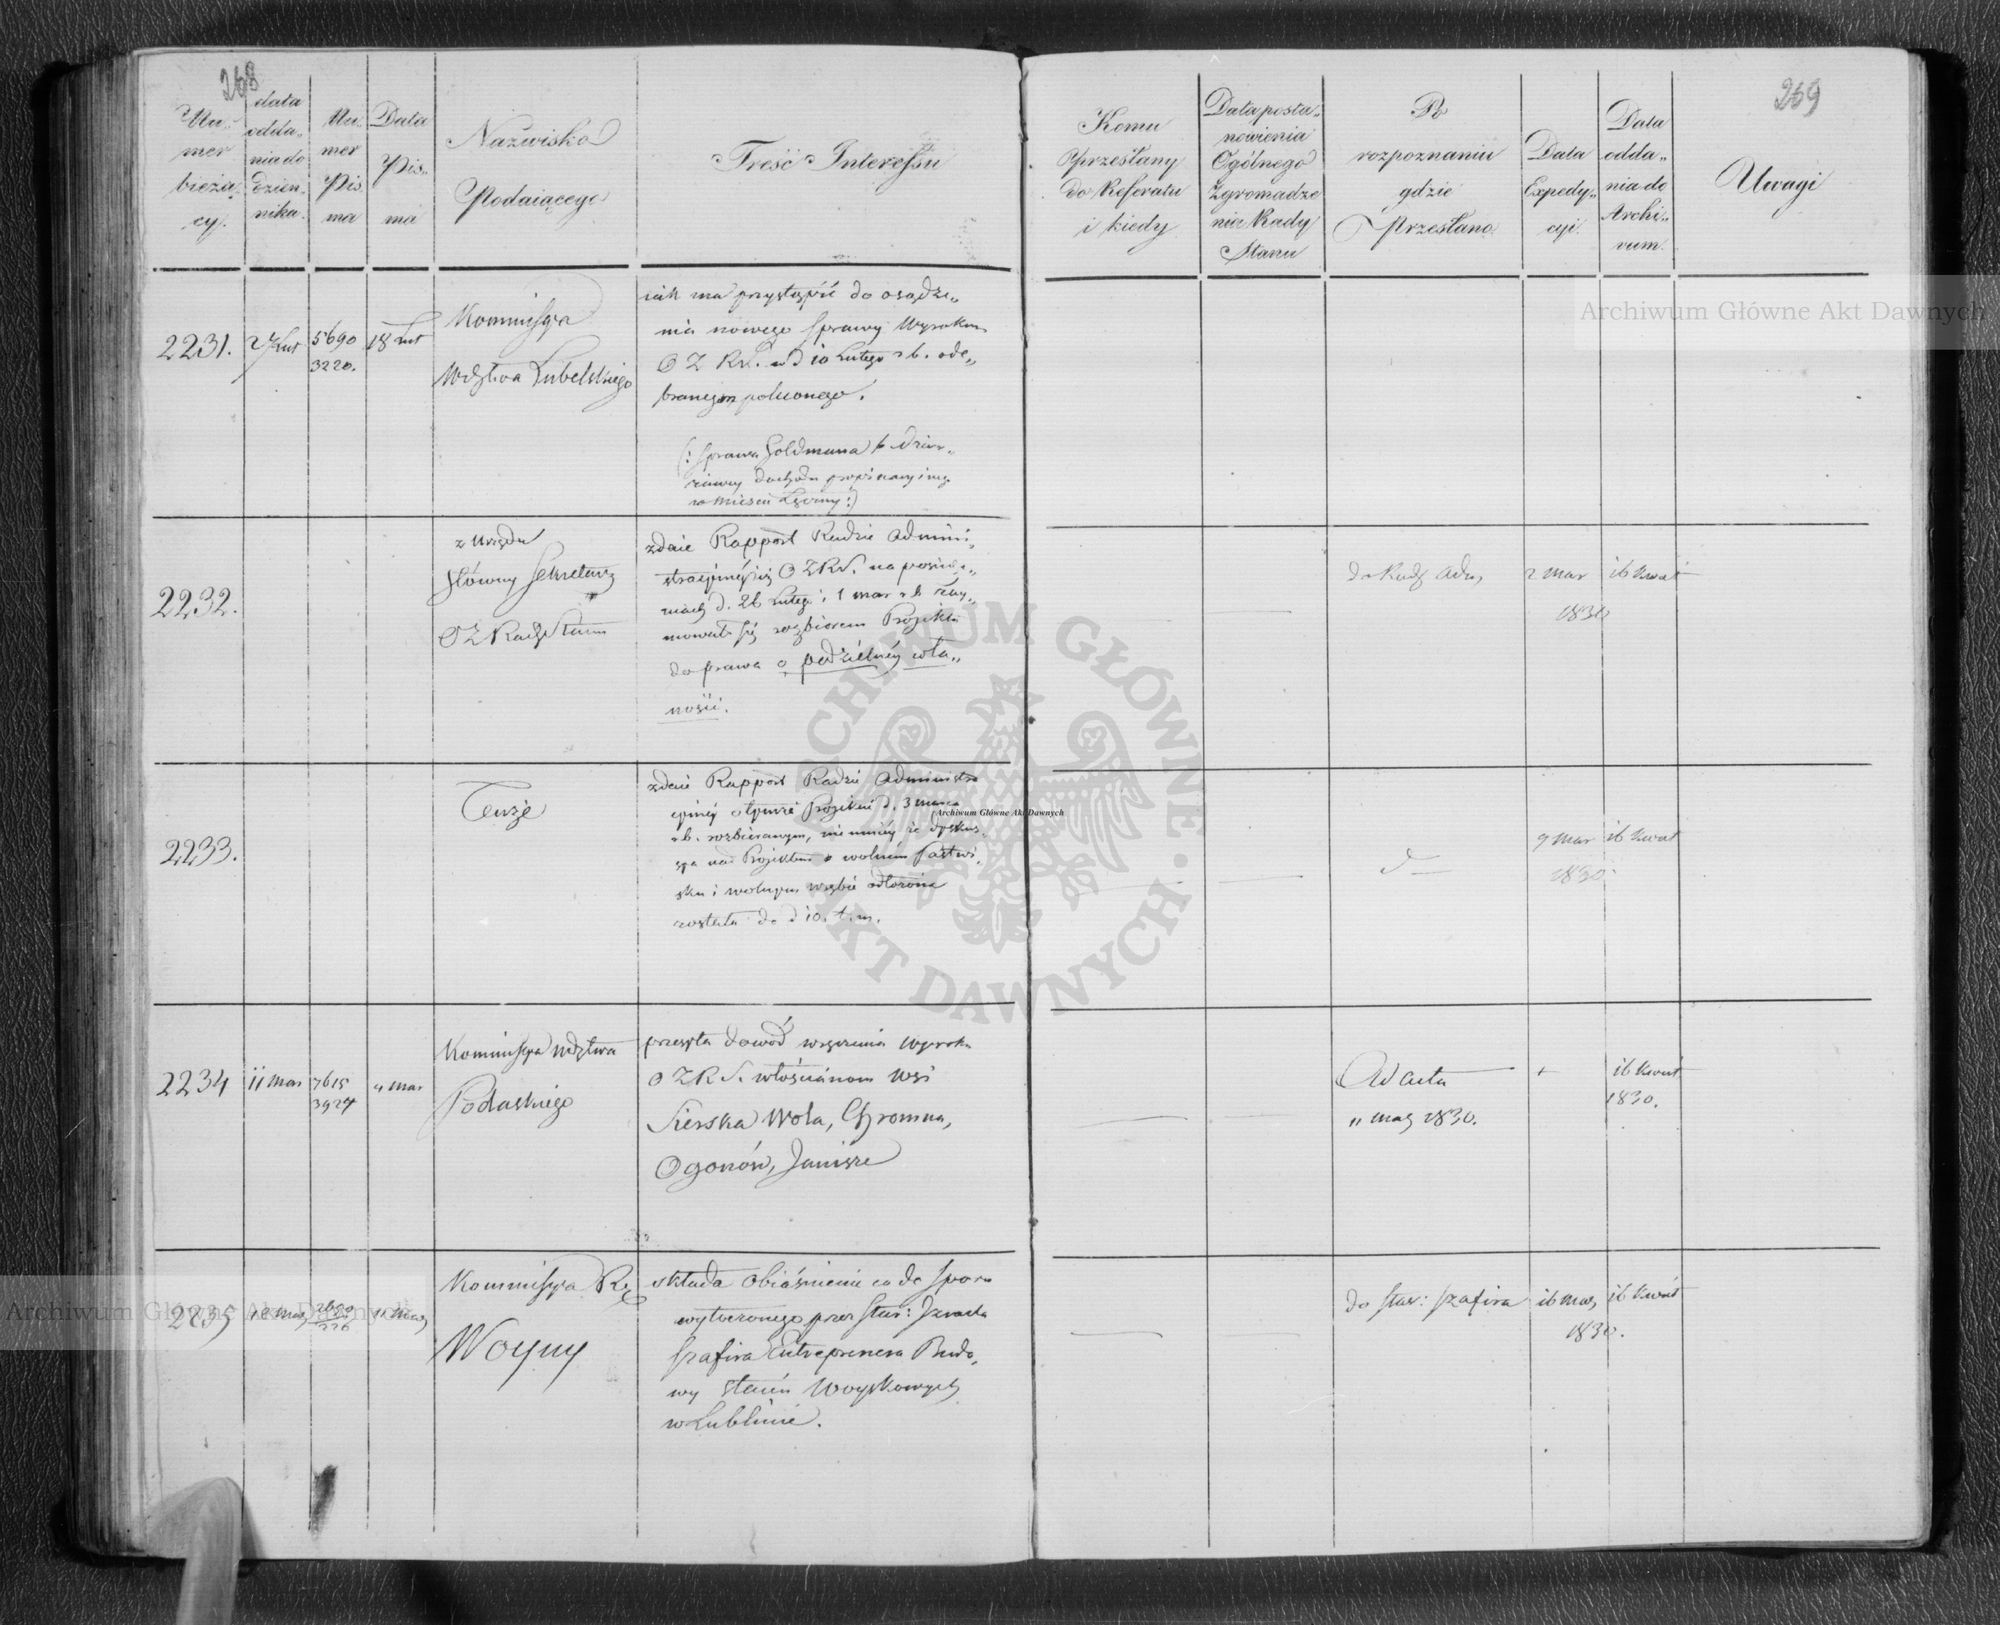 268
Nu-
mer
bieżą-
cy.
data
odda-
nia do
dzien-
nika.
Nu-
mer
Pis
ma
Data
Pis-
ma
Nazwisko
Podaiącego
Treść Interessu
2231.
27 Lut
5690
3220.
18 Lut
Kommissya
Wdztwa Lubelskiego
iak ma przystąpić do osądze„
nia nowego sprawy Wyrokiem
O Z R S. w d 10 Lutego r b. ode„
branym poleconego.
(: sprawa Goldmana
dochodu propinacyinego
w mieście Łęczny :)
2232.
z Urzędu
Główny Sekretarz
OZ Rady Stanu
zdaie Rapport Radzie Admini„
stracyinéy iż O Z R S. na posie„
niach d. 26 Lutego i 1 mar r b zay„
mowało się rozbiorem Projektu
do prawa o podzielnéy wła„
ności.
2233.
Tenże
zdaie Rapport Radzie Administra
cyinéy Projektu d. 3 marca
r b. rozbieranym, nie mniéy że dyskus„
sya nad Projektem o wolnem Pastwi„
sku i wolnym wrębie odłożoną
została do d 10. t. m.
2234
11 mar
7615
3924
„ mar
Kommissya Wdztwa
Podlaskiego
przesyła dowód wręczenia wyroku
O Z R S. włościanom wsi
Sierska Wola, Chromna,
Ogonów, Janisze
2235
12 mar
11 mar
Kommissya Rz
Woyny
składa obiaśnienie co do sporu
wytoczonego przez Star:
Szafira Entreprenera Budo„
wy staien Woyskowych
w Lublinie.
269
Komu
Przesłany
do Referatu
i kiedy
Data posta-
nowienia
Ogólnego
Zgromadze
nia Rady
Stanu
Po
rozpoznaniu
gdzie
Przesłano
Data
Expedy-
cyi.
Data
odda-
nia do
Archi-
wum.
Uwagi
do Rady Adm
2 Mar
1830
16 Kwiet
d
9 Mar
1830.
16 Kwiet
Ad acta
11 marz 1830.
+
16 Kwiet
1830.
do Star: Szafira
16 Marz
1830.
16 Kwiet
Archiwum Główne Akt Dawnych
ARCHIWUM GŁÓWNE
AKT DAWNYCH
Archiwum Główne Akt Dawnych
Archiwum Główne Akt Dawnych